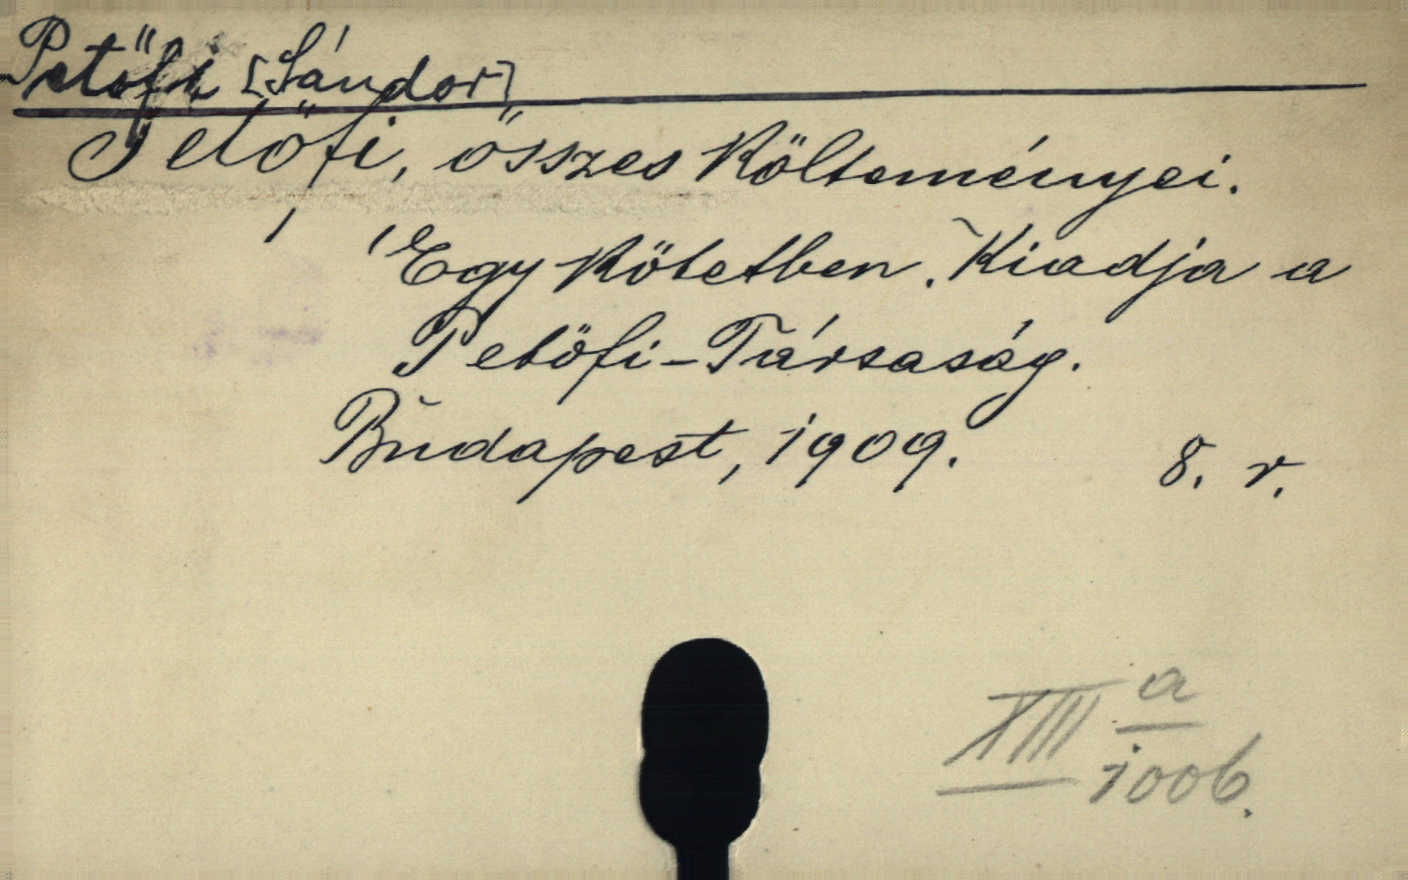 Petőfi [Sándor]
Petőfi, összes Költeményei.
Egy Kötetben. Kiadja a
Petőfi-Társaság.
Budapest, 1909. 8. r.
XIII a
1006.